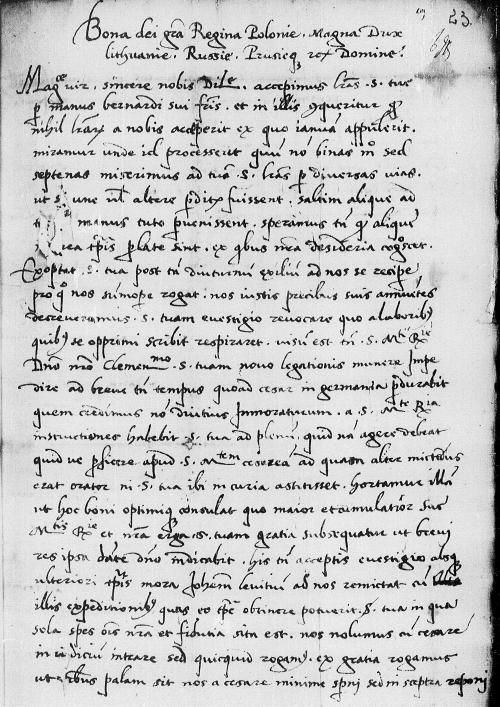 23.
Bona dei gra Regina Polonie. Magna Dux
lithuanie. Russie. Prusieq rex Domine.
Mag.ce vir. sincere nobis Dile. accepimus lras. S. tue
p manus bernardi sui fris. et in illis conqueritur q
nihil lraru a nobis acceperit ex quo ianuā appulerit.
miramur unde id processerit qui no binas mo sed
septenas miserimus ad tuā S. lras p diversas vias.
ut si une vel altere perdite fuissent. saltim alique ad
manus tuto pvenissent. speramus tn q alique
tpis plate sint. ex qbus nra desideria cognoscet.
Exoptat. S. tua post tn diuturnu exiliu ad nos se recipe
pro quo nos summope rogat. nos iustis precibus suis annuetes
decreveramus. S. tuam evestigio revocare quo a laborib
quibus se opprimi scribit respiraret. visu est tn. S. Mti Rie
Dno nro Clemenmo. S. tuam novo legationis munere impe
dire ad breve tn tempus quoad cesar in germania pdurabit
quem credimus no diutius immoraturum. a. S. Mte Ria
instructiones habebit. S. tua ad plenu. quid nā agere debeat
quid ve pficere apud. S. Mtem cesareā ad quam alter mictedus
erat orator ni. S. tua ibi in curia astitisset. hortamur illā
ut hoc boni optimiq consulat quo maior et cumulatior sue
Mtis Rie et nra erga. S. tuam gratia subsequatur ut brevi
res ipsa dante dno indicabit. his tn acceptis evestigio absq
ulteriori tpis mora Johem levitiu ad nos remictat cu
illis expeditionib quas eo tpe obtinere potuerit. S. tua in qua
sola spes ois nra et fidutia sita est. nos nolumus cu cesare
in iudiciu intrare sed quicquid rogam. ex gratia rogamus
ut omibus palam sit nos a cesare minime sperni sed in sceptra reponi